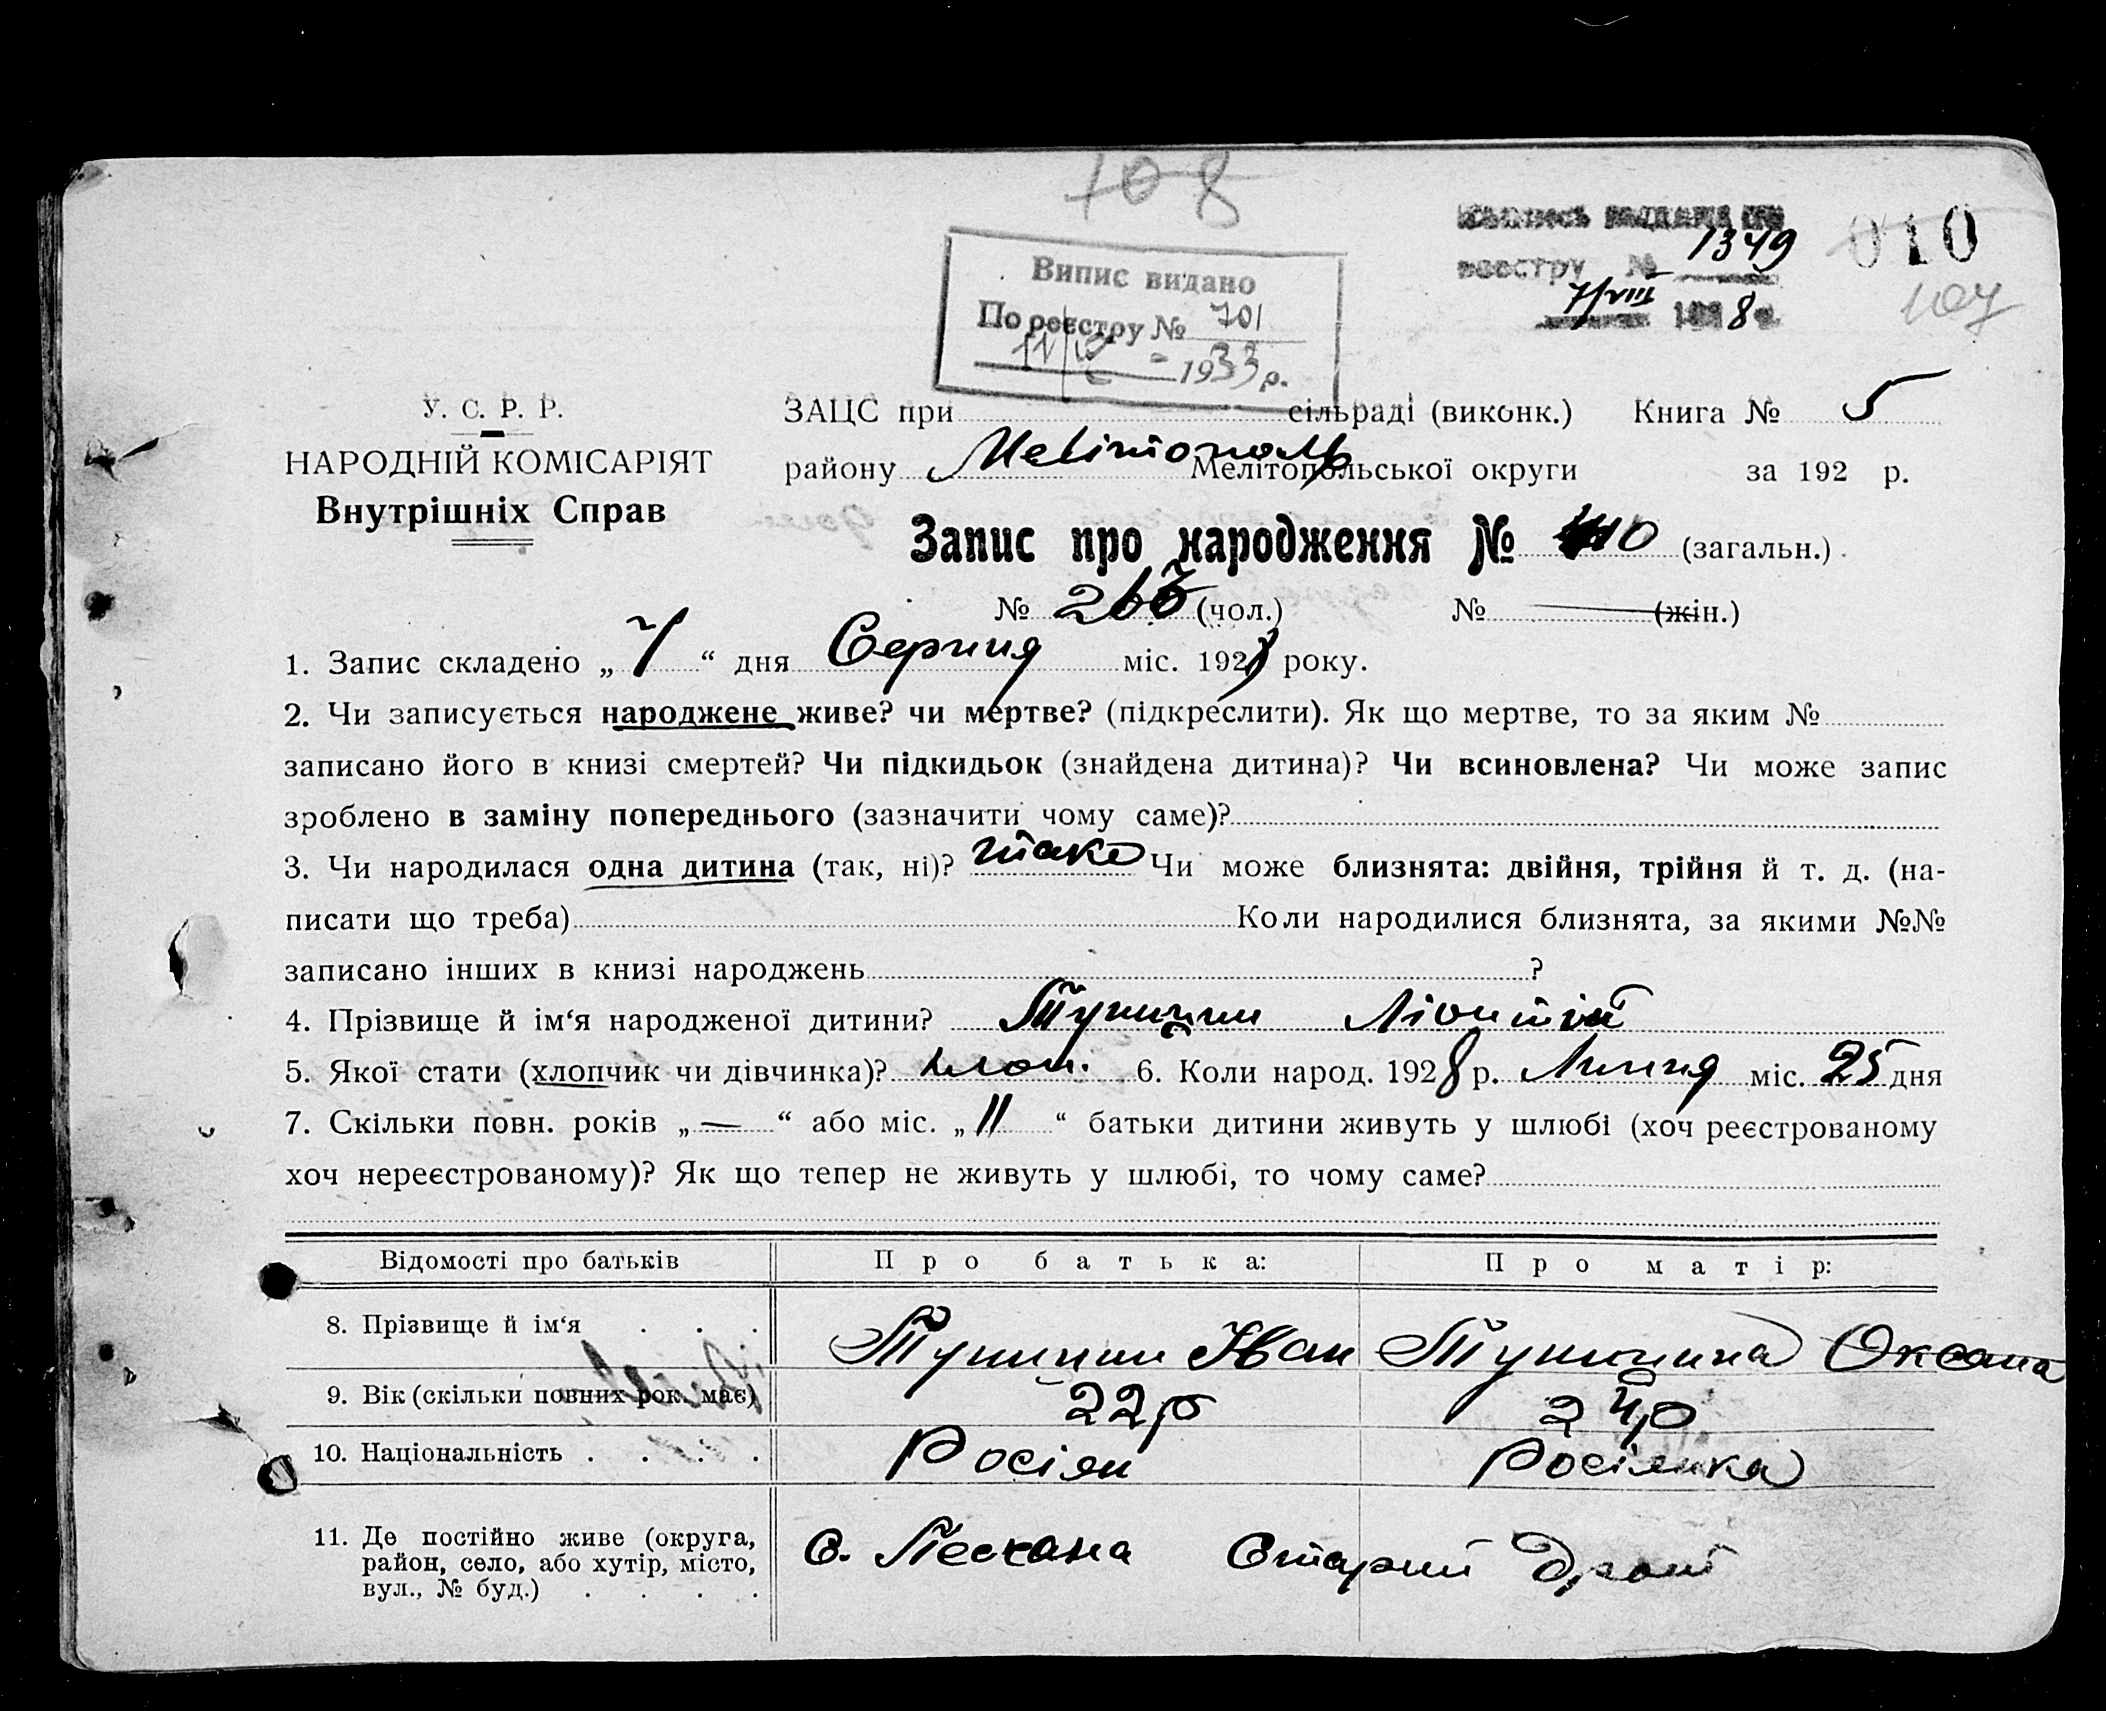 108
010
107
Випис видано
По реєстру № 701
1933 р.
реєстру № 1349
7/VIII 1928 р.
У. С. Р. Р.
НАРОДНІЙ КОМІСАРІЯТ
Внутрішніх Справ
ЗАЦС при сільраді (виконк.) Книга № 5
району Мелітополь Мелітопольської округи за 192 р.
Запис про народження № 410 (загальн.)
№ (чол.) № (жін.)
1. Запис складено „ 7 “ дня Серпня міс. 1928 року.
2. Чи записується народжене живе? чи мертве? (підкреслити). Як що мертве, то за яким №
записано його в книзі смертей? Чи підкидьок (знайдена дитина)? Чи всиновлена? Чи може запис
зроблено в заміну попереднього (зазначити чому саме)?
3. Чи народилася одна дитина (так, ні)? Чи може близнята: двійня, трійня й т. д. (на-
писати що треба) Коли народилися близнята, за якими №№
записано інших в книзі народжень ?
4. Прізвище й ім‘я народженої дитини?
5. Якої стати (хлопчик чи дівчинка)? хлоп. 6. Коли народ. 1928 р. Липня міс. 25 дня
7. Скільки повн. років „ — “ або міс. „ 11 “ батьки дитини живуть у шлюбі (хоч реєстрованому
хоч нереєстрованому)? Як що тепер не живуть у шлюбі, то чому саме?
Відомості про батьків Про батька: Про матір:
8. Прізвище й ім‘я . . . Іван Оксана
9. Вік (скільки повних рок. має) 22 р 24 р
10. Національність . . . . Росіян Росіянка
11. Де постійно живе (округа,
район, село, або хутір, місто,
вул., № буд.) . . . . С. Пескана Старий